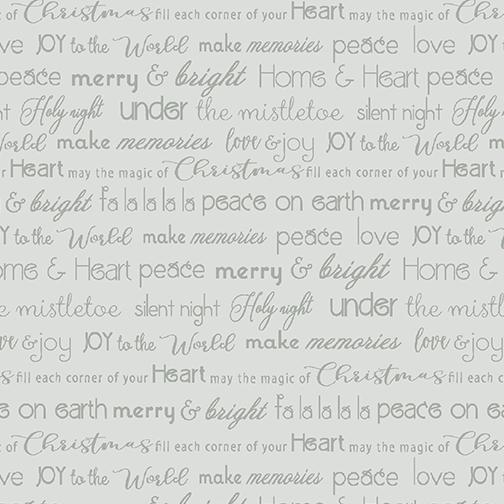 of Christmas fill each corner of your Heart may the magic of Christmas
love JOY to the World make memories peace love JOY
peace merry & bright Home & Heart peace
night Holy night under the mistletoe silent night Holy
World make memories love & joy JOY to the World
Heart may the magic of Christmas fill each corner of your Heart
& bright fa la la la la peace on earth merry & bright
JOY to the World make memories peace love JOY to the
Home & Heart peace merry & bright Home &
mistletoe silent night Holy night under the mistletoe
love & joy JOY to the World make memories love & joy
Christmas fill each corner of your Heart may the magic of Christmas fill each
peace on earth merry & bright fa la la la la peace on
of Christmas fill each corner of your Heart may the magic of Christmas
love JOY to the World make memories peace love JOY
peace merry & bright Home & Heart peace